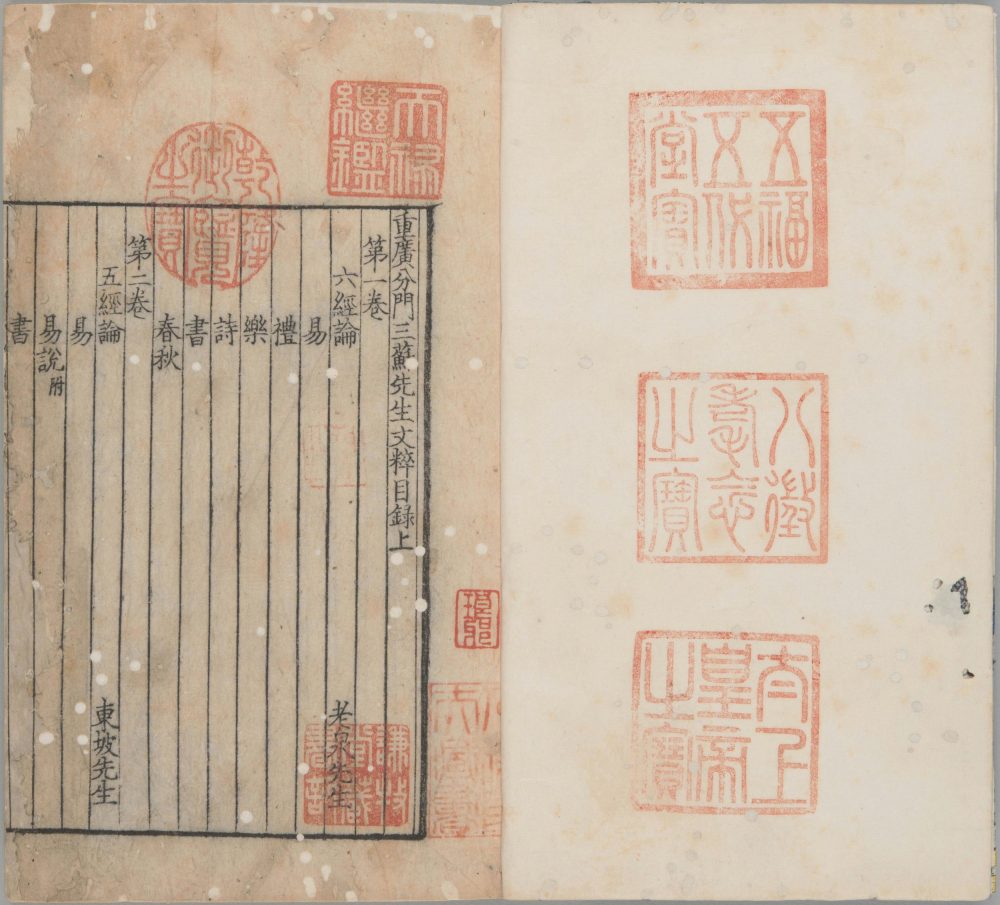 五福五代堂寶
八徵耄念之寶
太上皇帝之寶
天祿繼鑑
乾隆御覽之寶
重廣分門三蘇先生文粹目録上
第一卷
六經論 老泉先生
易
禮
樂
詩
書
春秋
第二卷
五經論 東坡先生
易
易說附
書
謙牧堂藏書記